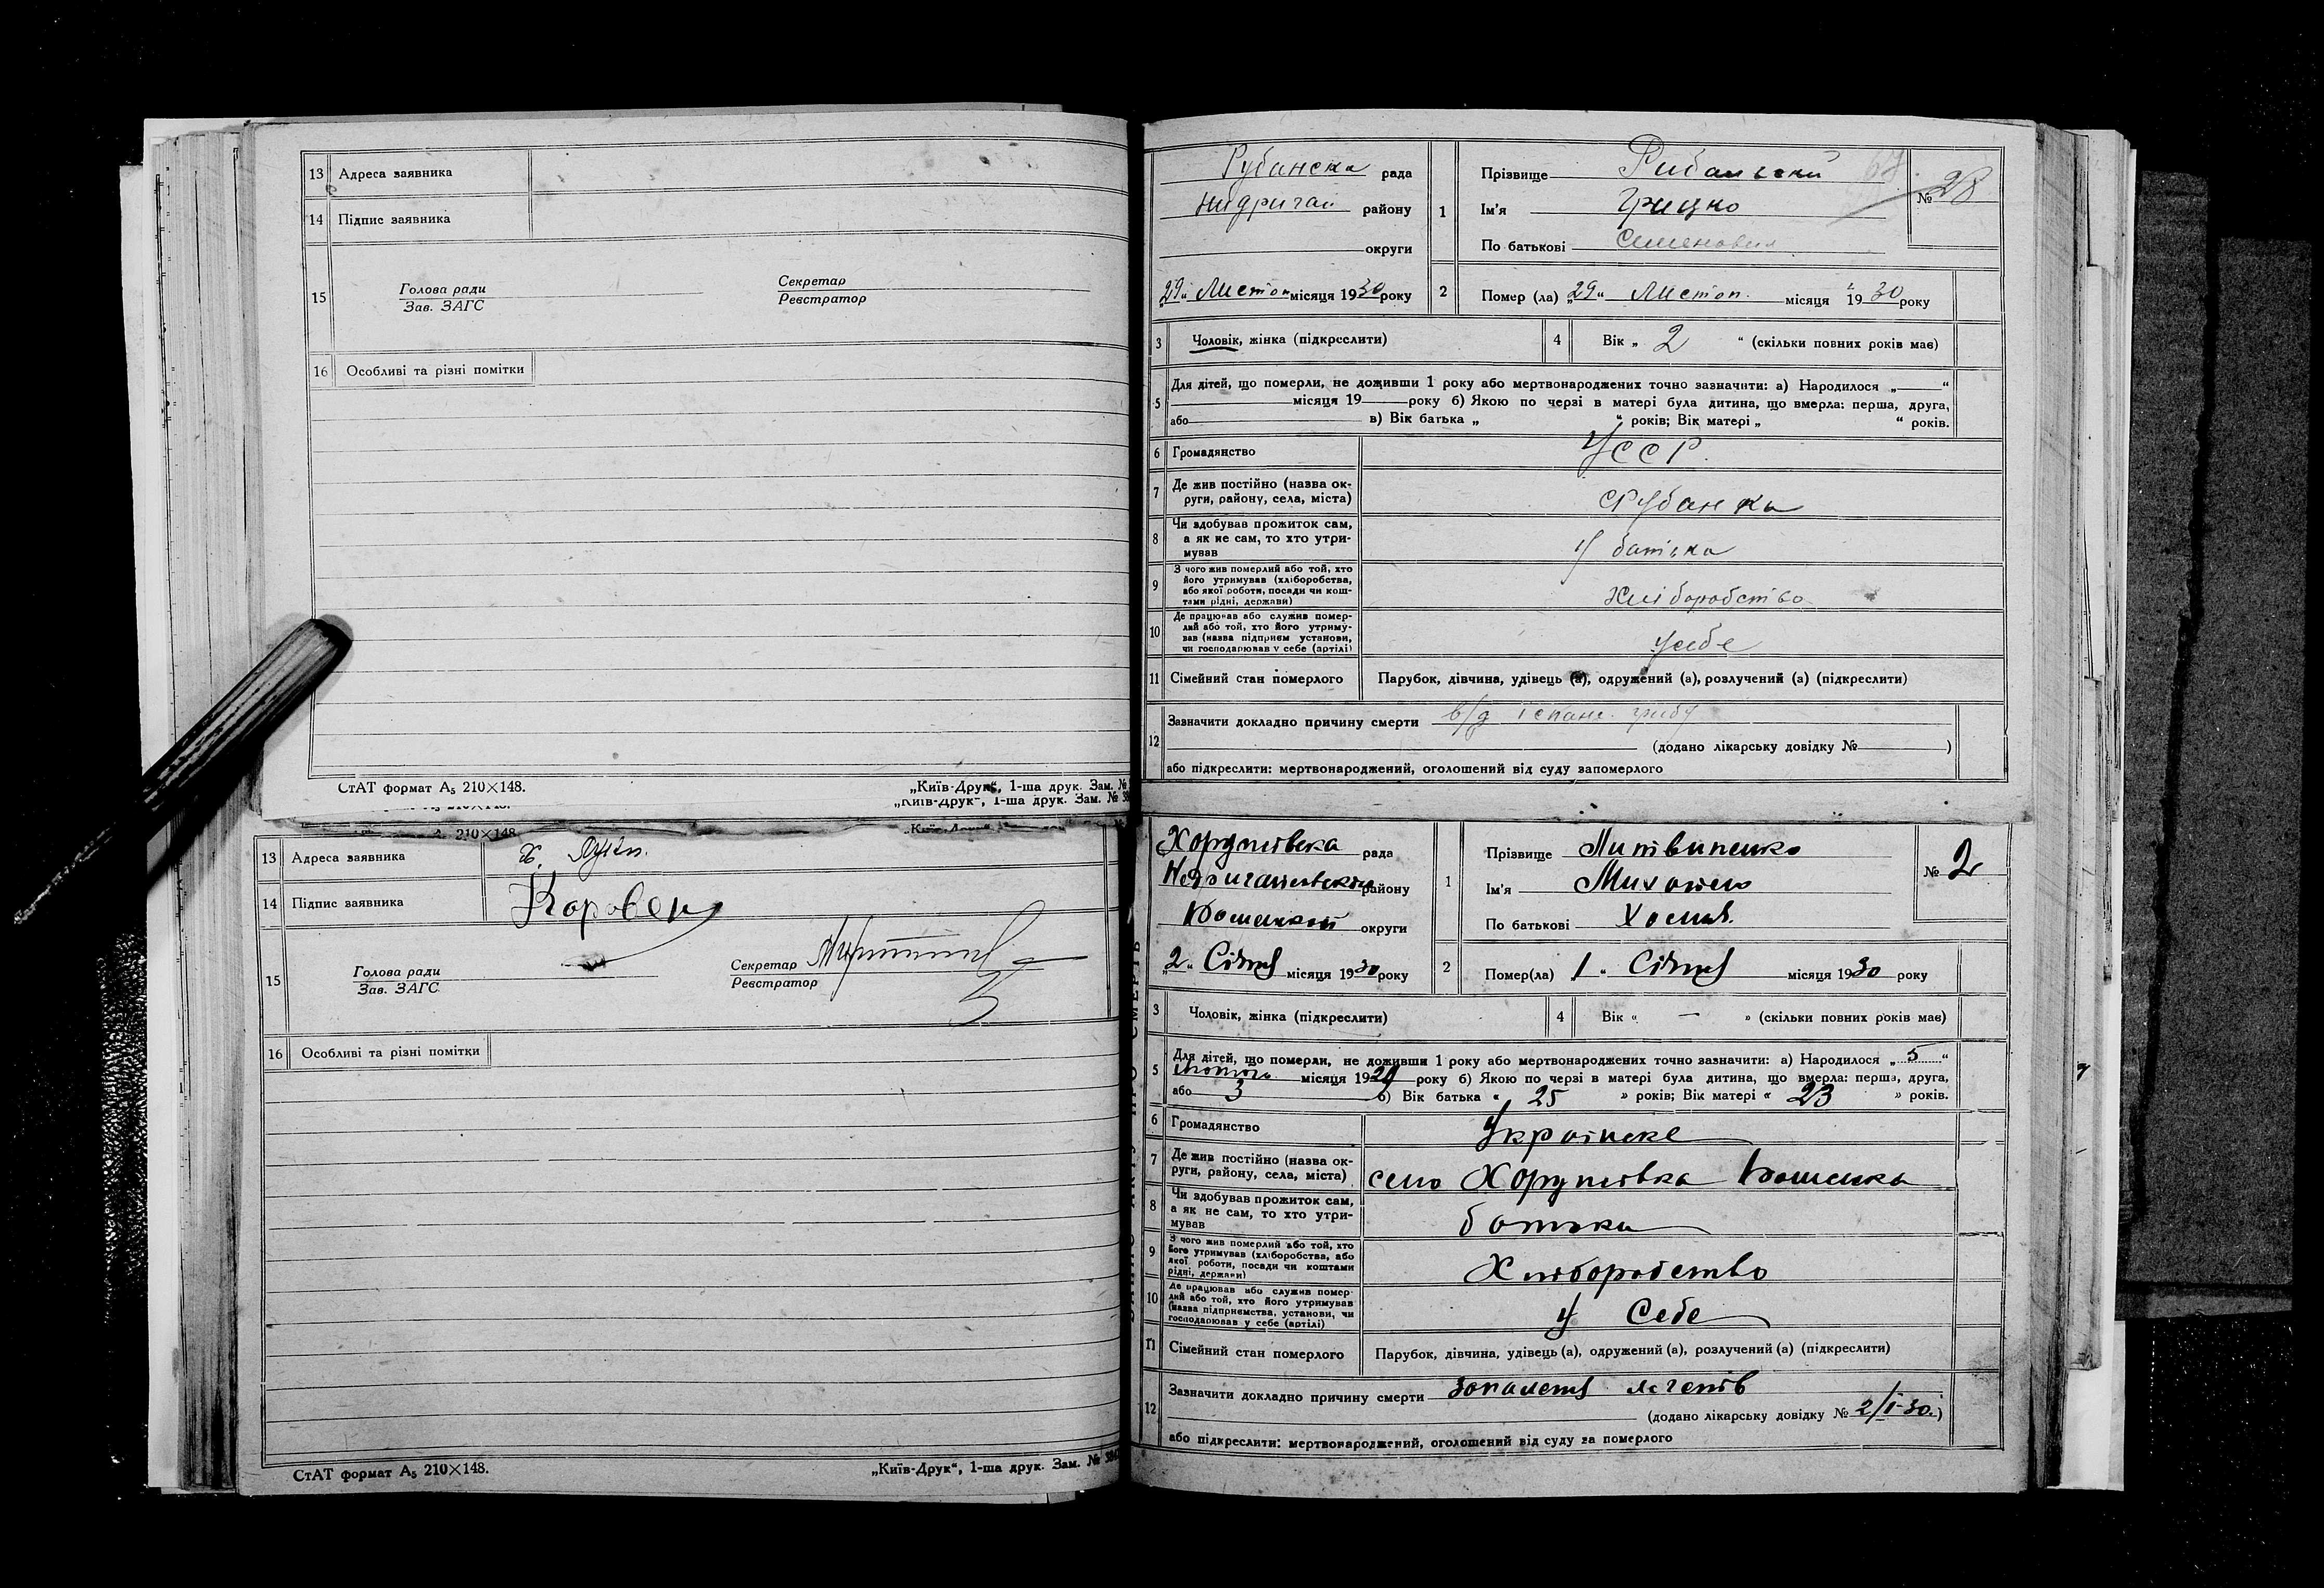 13 Адреса заявника
14 Підпис заявника
15 Голова ради
Зав. ЗАГС
Секретар
Реєстратор
16 Особливі та різні помітки
СтАТ формат А₅ 210×148.
„Київ-Друк“, 1-ша друк. Зам. №
„Київ-Друк“, 1-ша друк. Зам. №
210×148
13 Адреса заявника
14 Підпис заявника
15 Голова ради
Зав. ЗАГС
Секретар
Реєстратор
16 Особливі та різні помітки
СтАТ формат А₅ 210×148.
„Київ-Друк“, 1-ша друк. Зам. №
Рубанска рада
Нидригай району
округи
„29“ Листоп місяця 1930 року
1 Прізвище Рибальский
Ім'я Грицко
По батькові Семенович
№ 28
2 Помер (ла) „29“ Листоп. місяця 1930 року
3 Чоловік, жінка (підкреслити)
4 Вік „ 2 “ (скільки повних років має)
5 Для дітей, що померли, не доживши 1 року або мертвонароджених точно зазначити: а) Народилося „ “
місяця 19 року б) Якою по черзі в матері була дитина, що вмерла: перша, друга,
або в) Вік батька „ “ років; Вік матері „ “ років.
6 Громадянство УССР.
7 Де жив постійно (назва ок-
руги, району, села, міста) с Рубанка
8 Чи здобував прожиток сам,
а як не сам, то хто утри-
мував У батька
9 З чого жив померлий або той, хто
його утримував (хліборобства,
або якої роботи, посади чи кош-
тами рідні, держави) Хліборобство
10 Де працював або служив помер-
лий або той, хто його утриму-
вав (назва підприєм установи,
чи господарював у себе (артілі) Усебе
11 Сімейний стан померлого Парубок, дівчина, удівець (а), одружений (а), розлучений (а) (підкреслити)
12 Зазначити докладно причину смерти в/д іспанс. грибу
(додано лікарську довідку № )
або підкреслити: мертвонароджений, оголошений від суду запомерлого
Хорунівска рада
району
округи
„2“ Січня місяця 1930 року
1 Прізвище Литвиненко
Ім'я Михайло
По батькові Хомив.
№ 2
2 Помер(ла) 1 “ Січня місяця 1930 року
3 Чоловік, жінка (підкреслити)
4 Вік “ — » (скільки повних років має)
5 Для дітей, що померли, не доживши 1 року або мертвонароджених точно зазначити: а) Народилося „ 5 “
лютого місяця 1929 року б) Якою по черзі в матері була дитина, що вмерла: перша, друга,
або 3 в) Вік батька « 25 » років; Вік матері « 23 » років.
6 Громадянство Українске
7 Де жив постійно (назва ок-
руги, району, села, міста) село Хорунівка
8 Чи здобував прожиток сам,
а як не сам, то хто утри-
мував батька
9 З чого жив померлий або той, хто
його утримував (хліборобства, або
якої роботи, посади чи коштами
рідні, держави) Хліборобство
10 Де працював або служив помер-
лий або той, хто його утримував
(назва підприємства, установи, чи
господарював у себе (артілі) У Себе
11 Сімейний стан померлого Парубок, дівчина, удівець (а), одружений (а), розлучений (а) (підкреслити)
12 Зазначити докладно причину смерти запаленя легенів
(додано лікарську довідку № 2/I-30.)
або підкреслити: мертвонароджений, оголошений від суду за померлого